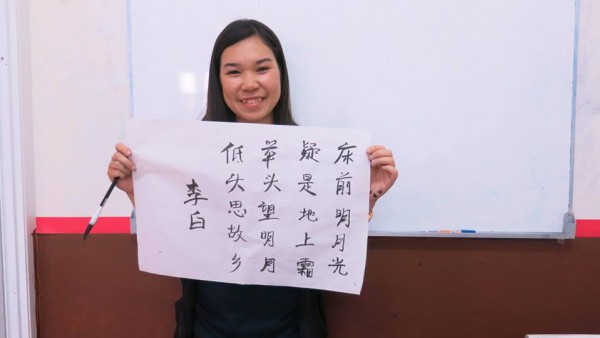 床前明月光
疑是地上霜
举头望明月
低头思故乡
李白